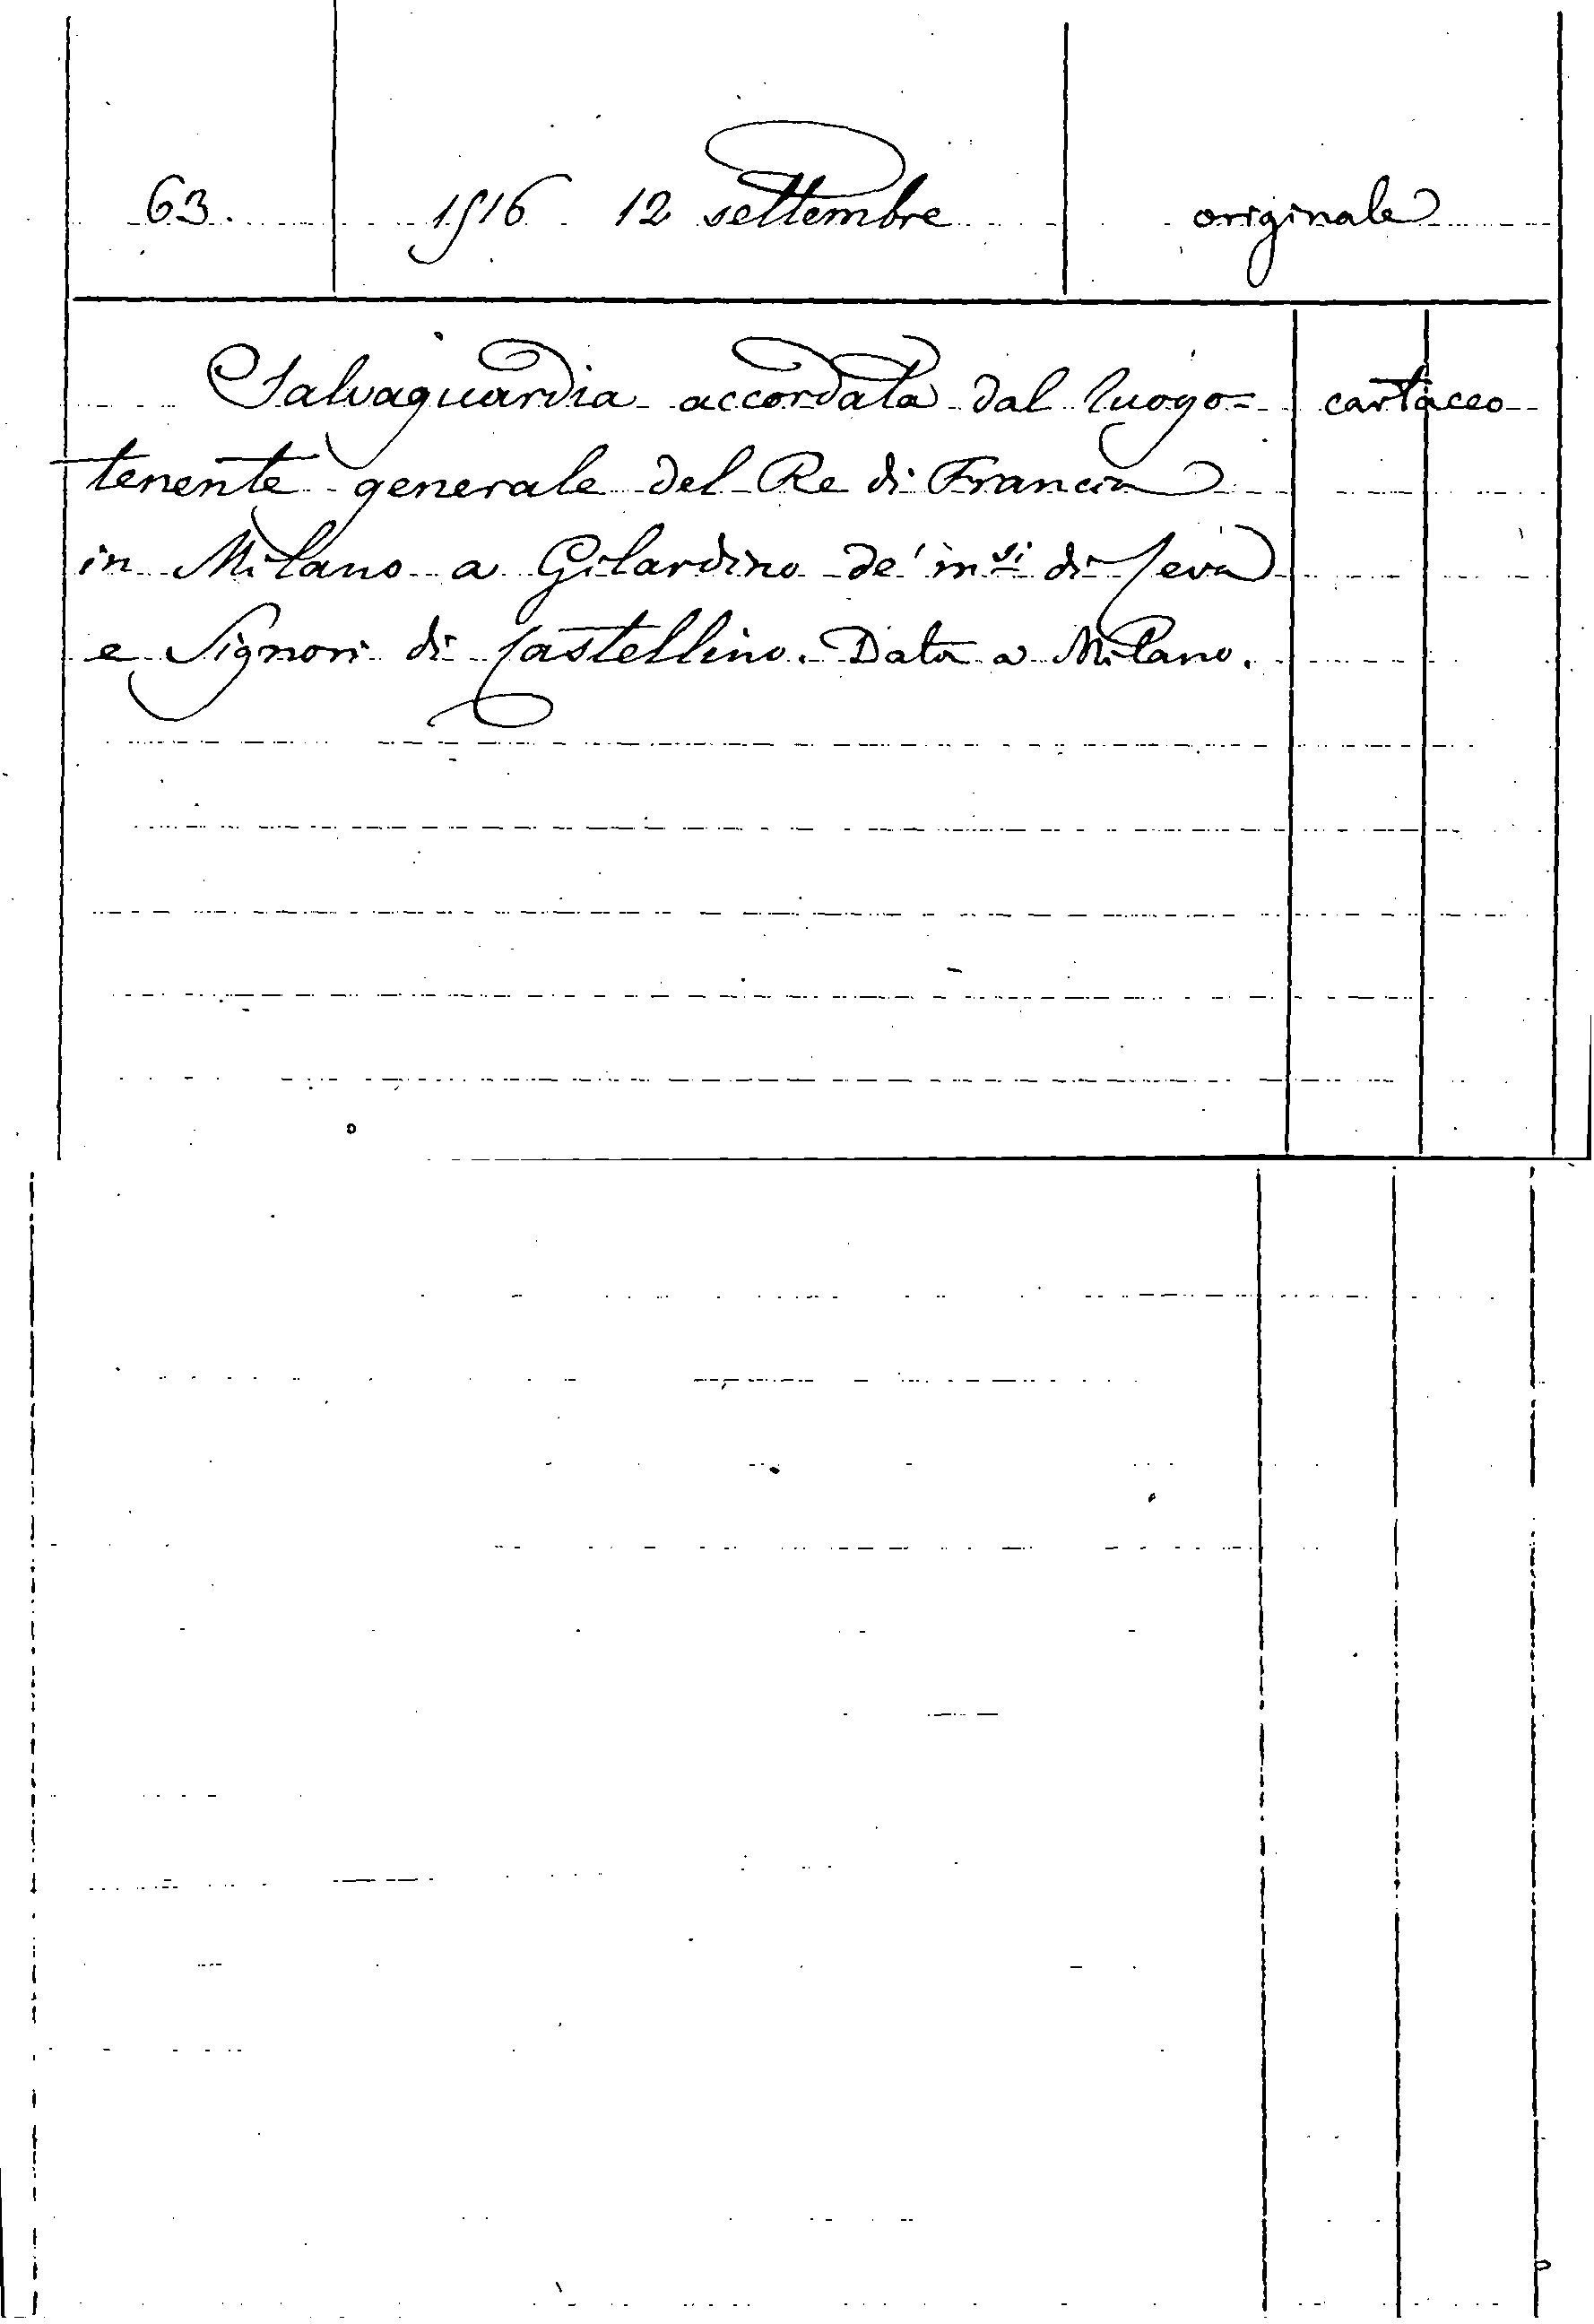 63. 1516 12 settembre originale
Salvaguardia accordata dal luogo= cartaceo
tenente generale del Re di Francia
in Milano a Gilardino de' m.si di Ceva
e Signori di Castellino. Data a Milano.